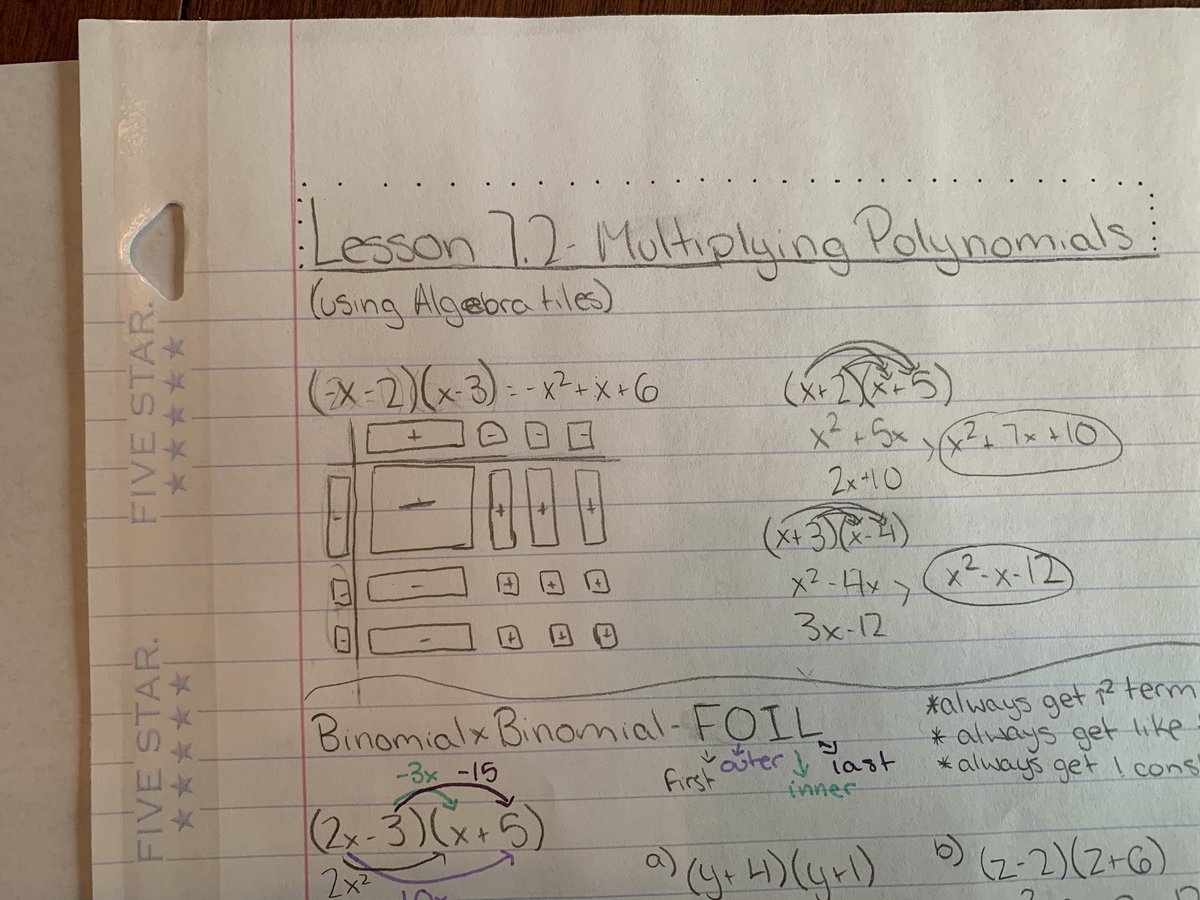 Lesson 7.2 - Multiplying Polynomials
(using Algebra tiles)
(-x-2)(x-3) = -x²+x+6
+ - - -
- - + + +
- - + + +
- - + + +
(x+2)(x+5)
x² + 5x, x² + 7x + 10
2x+10
(x+3)(x-4)
x² - 4x, x² - x - 12
3x-12
Binomial x Binomial - FOIL
first outer inner last
*always get 1 ² term
* always get like
* always get 1 cons
-3x -15
(2x-3)(x+5)
2x²
10x
a) (y+4)(y+1)
b) (z-2)(z+6)
FIVE STAR.
FIVE STAR.